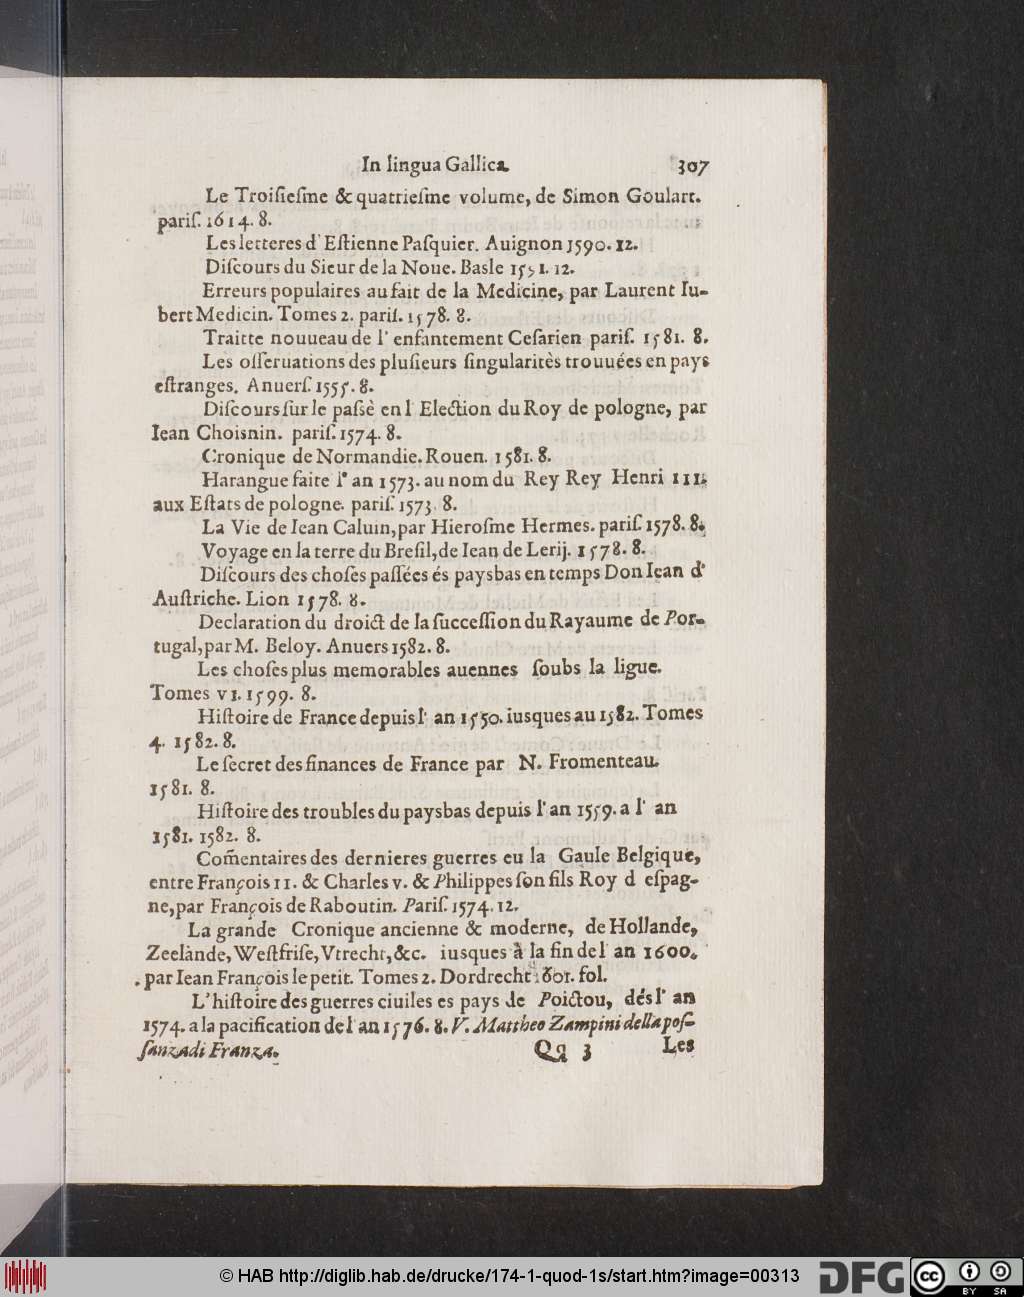 In lingua Gallica. 307
Le Troiſieſme & quatrieſme volume, de Simon Goulart.
pariſ. 1614. 8.
Les letteres d' Eſtienne Paſquier. Auignon 1590. 12.
Diſcours du Sieur de la Noue. Basle 1591. 12.
Erreurs populaires au fait de la Medicine, par Laurent Iu-
bert Medicin. Tomes 2. pariſ. 1578. 8.
Traitte nouueau de l' enfantement Ceſarien pariſ. 1581. 8.
Les oſſeruations des pluſieurs ſingularitès trouuées en pays
eſtranges. Anuerſ. 1555. 8.
Diſcours ſur le paſsè en l Election du Roy de pologne, par
Iean Choisnin. pariſ. 1574. 8.
Cronique de Normandie. Rouen. 1581. 8.
Harangue faite l' an 1573. au nom du Rey Rey Henri III.
aux Eſtats de pologne. pariſ. 1573. 8.
La Vie de Iean Caluin, par Hieroſme Hermes. pariſ. 1578. 8.
Voyage en la terre du Breſil, de Iean de Lerij. 1578. 8.
Diſcours des choſes paſſées és paysbas en temps Don Iean d'
Auſtriche. Lion 1578. 8.
Declaration du droict de la ſucceſſion du Rayaume de Por-
tugal, par M. Beloy. Anuers 1582. 8.
Les choſes plus memorables auennes ſoubs la ligue.
Tomes VI. 1599. 8.
Hiſtoire de France depuis l' an 1550. iusques au 1582. Tomes
4. 1582. 8.
Le ſecret des finances de France par N. Fromenteau.
1581. 8.
Hiſtoire des troubles du paysbas depuis l' an 1559. a l' an
1581. 1582. 8.
Com̃entaires des dernieres guerres eu la Gaule Belgique,
entre François II. & Charles V. & Philippes ſon fils Roy d eſpag-
ne, par François de Raboutin. Pariſ. 1574. 12.
La grande Cronique ancienne & moderne, de Hollande,
Zeelànde, Weſtfriſe, Vtrecht, &c. iusques à la fin de l an 1600.
par Iean François le petit. Tomes 2. Dordrecht 1601. fol.
L'hiſtoire des guerres ciuiles es pays de Poictou, dés l' an
1574. a la pacification de l an 1576. 8. V. Mattheo Zampini della poſ-
ſanza di Franza.
Qq 3 Les
© HAB http://diglib.hab.de/drucke/174-1-quod-1s/start.htm?image=00313
DFG
cc BY SA